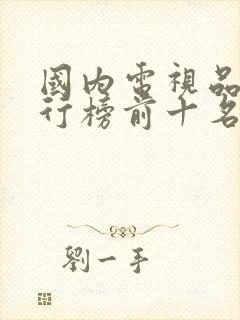 國內電視品
行榜前十名
劉一手